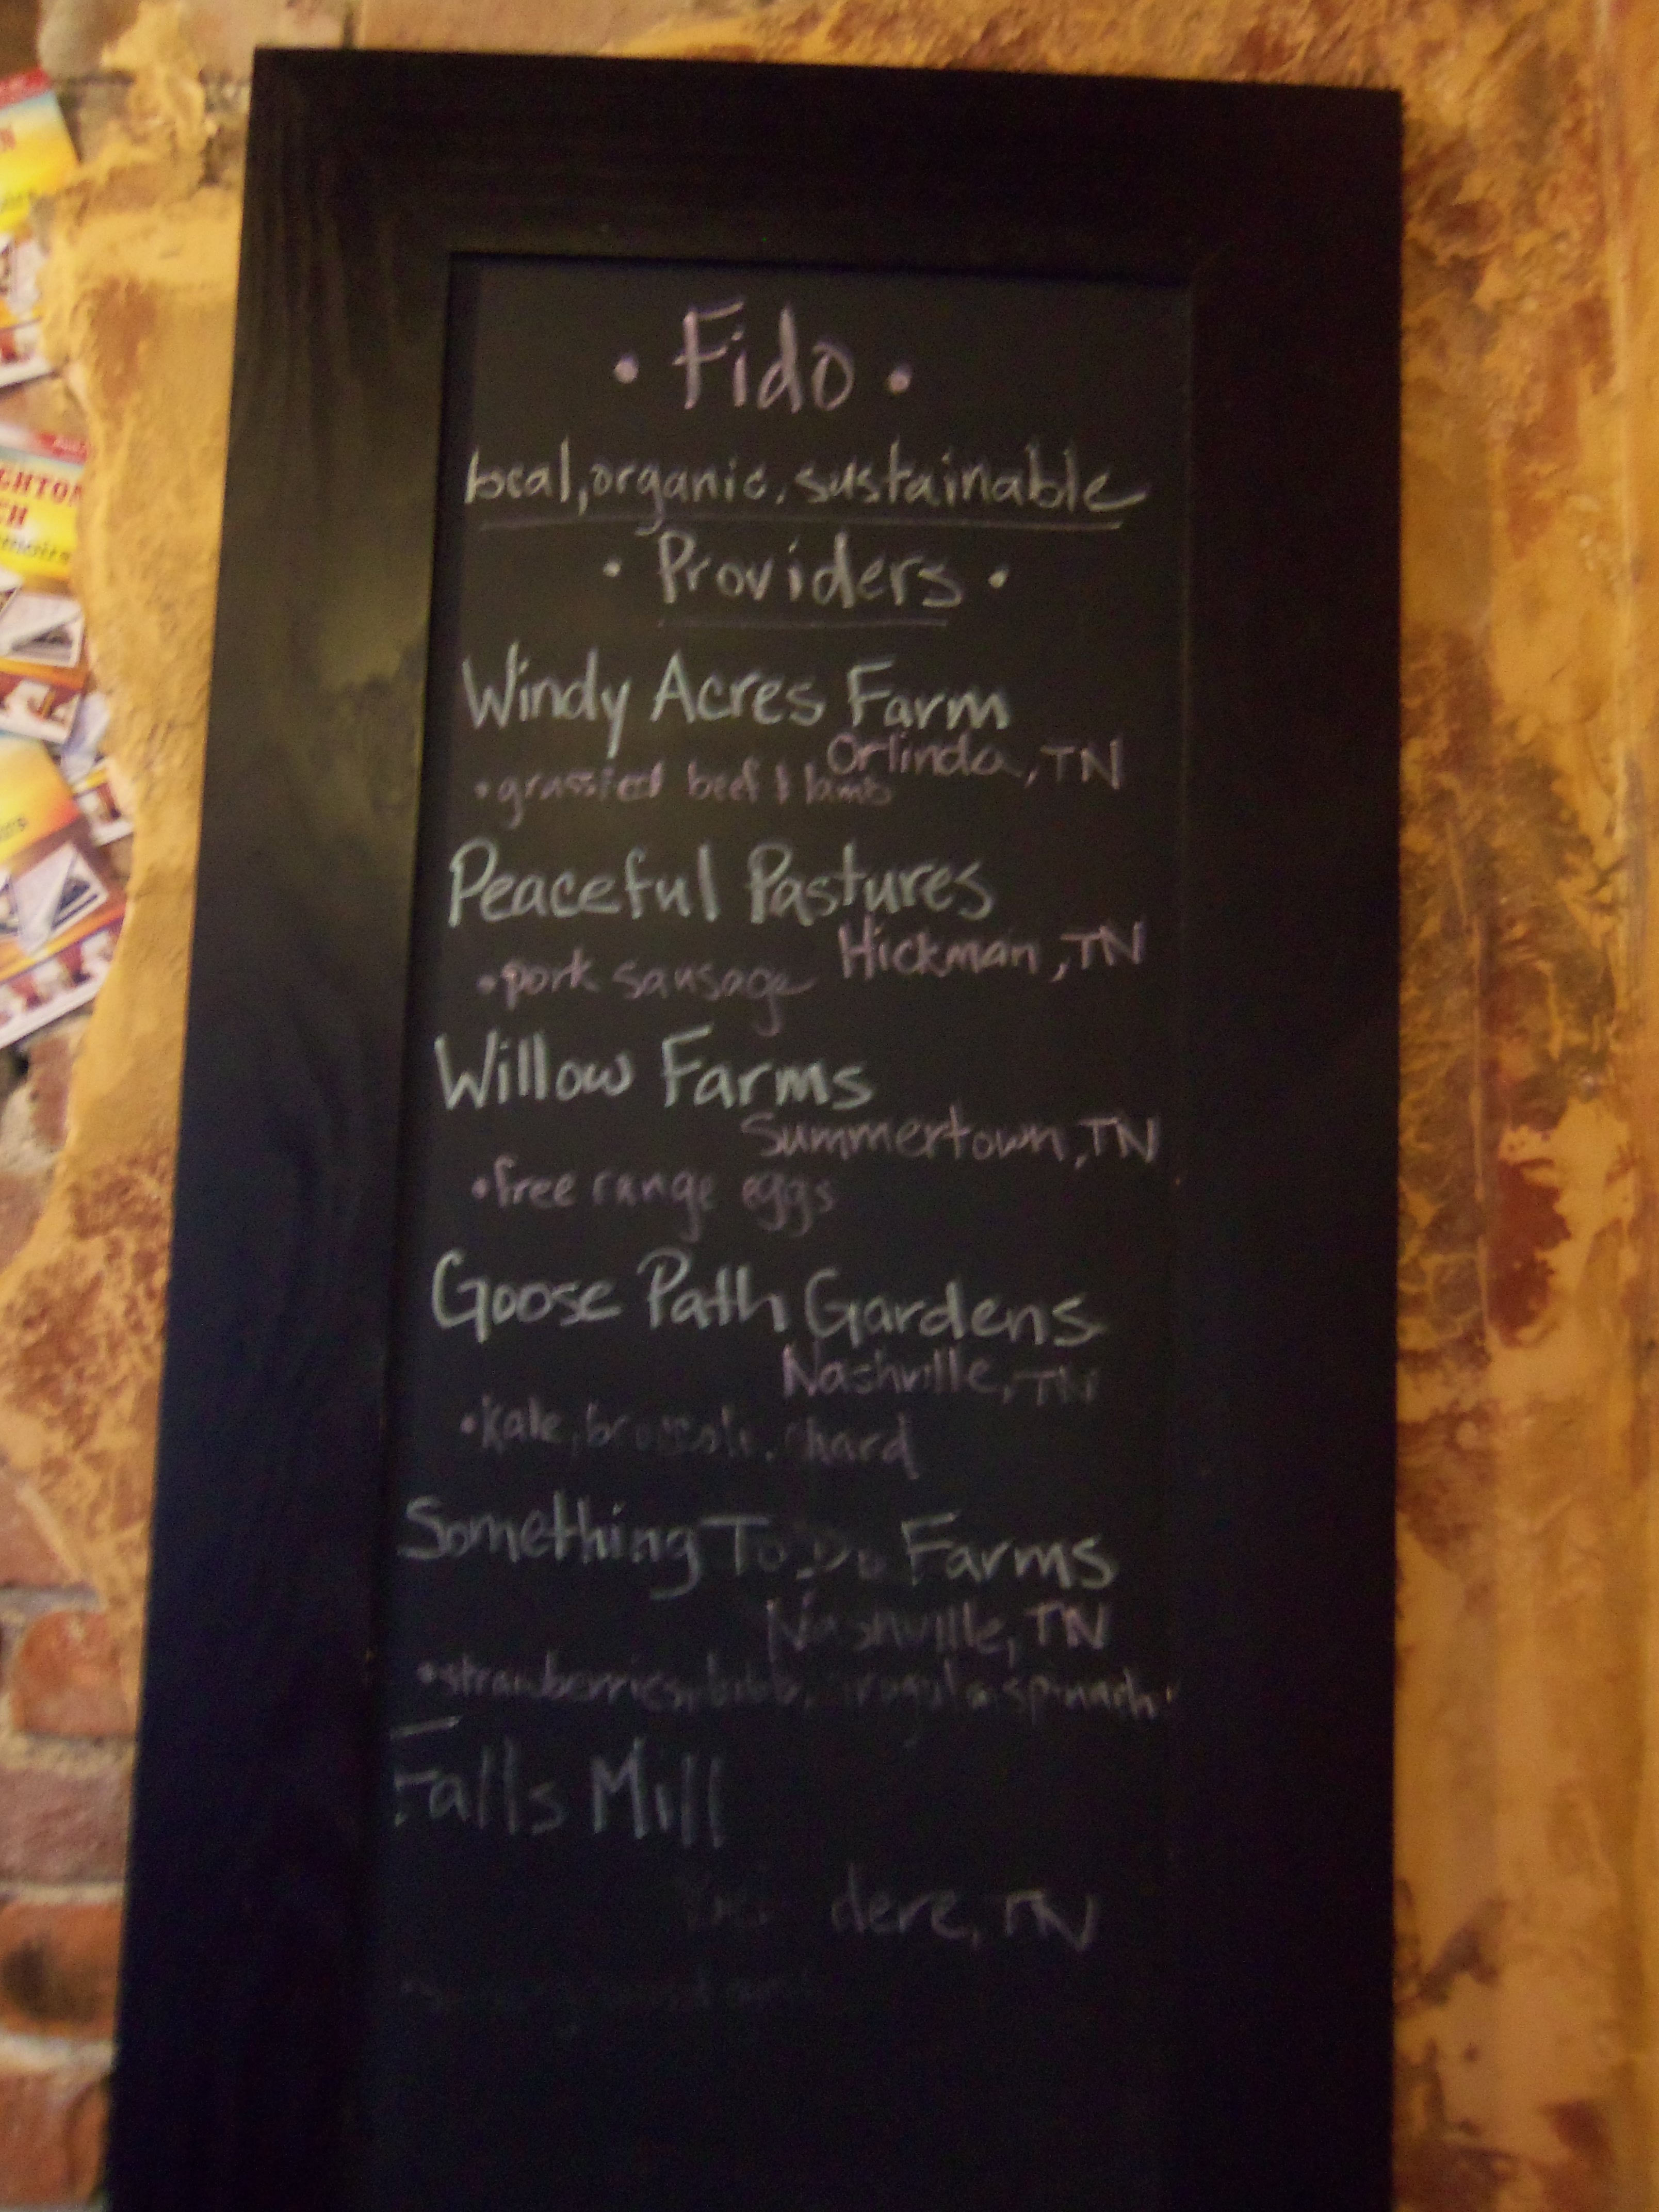 • Fido •
local, organic, sustainable
• Providers •
Windy Acres Farm
Orlinda, TN
• grassfed beef & lamb
Peaceful Pastures
Hickman, TN
• pork sausage
Willow Farms
Summertown, TN
• free range eggs
Goose Path Gardens
Nashville, TN
• kale, broccoli, chard
Something To Do Farms
Nashville, TN
• strawberries, bibb, arugula, spinach
Falls Mill
TN
GHTON
CH